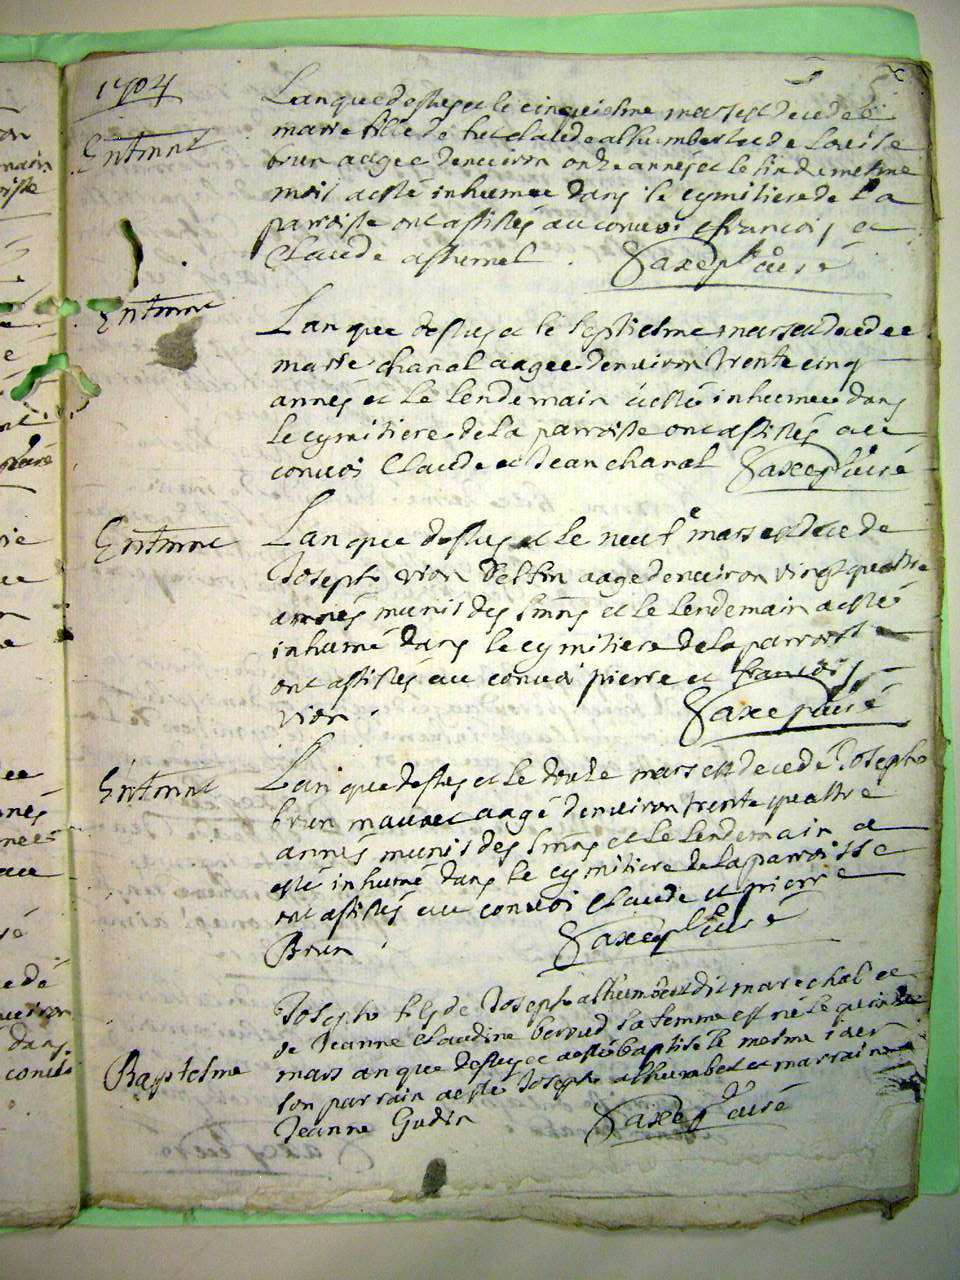 1704
Entmnt
Lan que dessus et le cinquiesme mars est decedeé
marie fille de feu claude alhumbert et de Louise
brun aagee denviron onze années et le six du mesme
mois a esté inhumee dans le cymitiere de la
paroisse ont assistés au convoi francois et
Claude alhumbert . Saxe p curé
Entmnt
Lan que dessus et le septiesme mars est decedee
marie chanal aagee denviron trente cinq
annés et le lendemain a esté inhumee dans
le cymitiere de la parroisse ont assistés au
convoi Claude et Jean chanal Saxe p curé
Entmnt
Lan que dessus et le neufe mars est decede
Joseph vion aagé denviron vingt quattre
annés munis des smns et le lendemain a esté
inhumé dans le cymitiere de la parroisse
ont assistés au convoi pierre et francois
vion . Saxe p curé
Entmnt
Lan que dessus et le douze mars est decedé Joseph
brun aagé denviron trente quattre
annés munis des smns et le lendemain a
esté inhumé dans le cymitiere de la parroisse
ont assistés au convoi Claude et pierre
Brun Saxe p curé
Baptesme
Joseph fils de Joseph alhumbert dit marechal et
de Jeanne Claudine beroud sa femme est né le quinze
mars an que dessus et a esté baptisé le mesme iour
son parrain a esté Joseph alhumbert et marraine
Jeanne Gudin Saxe p curé